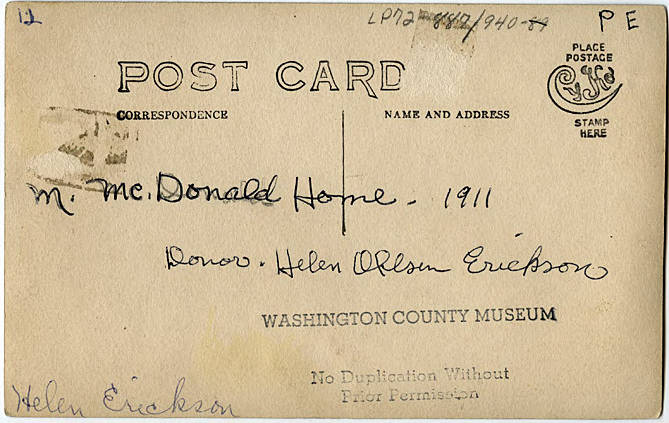 12
LP72 887/940-89
P E
POST CARD
CORRESPONDENCE
NAME AND ADDRESS
PLACE
POSTAGE
CyKo
STAMP
HERE
M. Mc. Donald Home - 1911
Donor - Helen Ohlsen Erickson
WASHINGTON COUNTY MUSEUM
No Duplication Without
Prior Permission
Helen Erickson